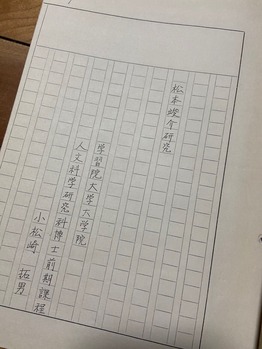 松本竣介研究
学習院大学大学院
人文科学研究科博士前期課程
小松崎 拓男